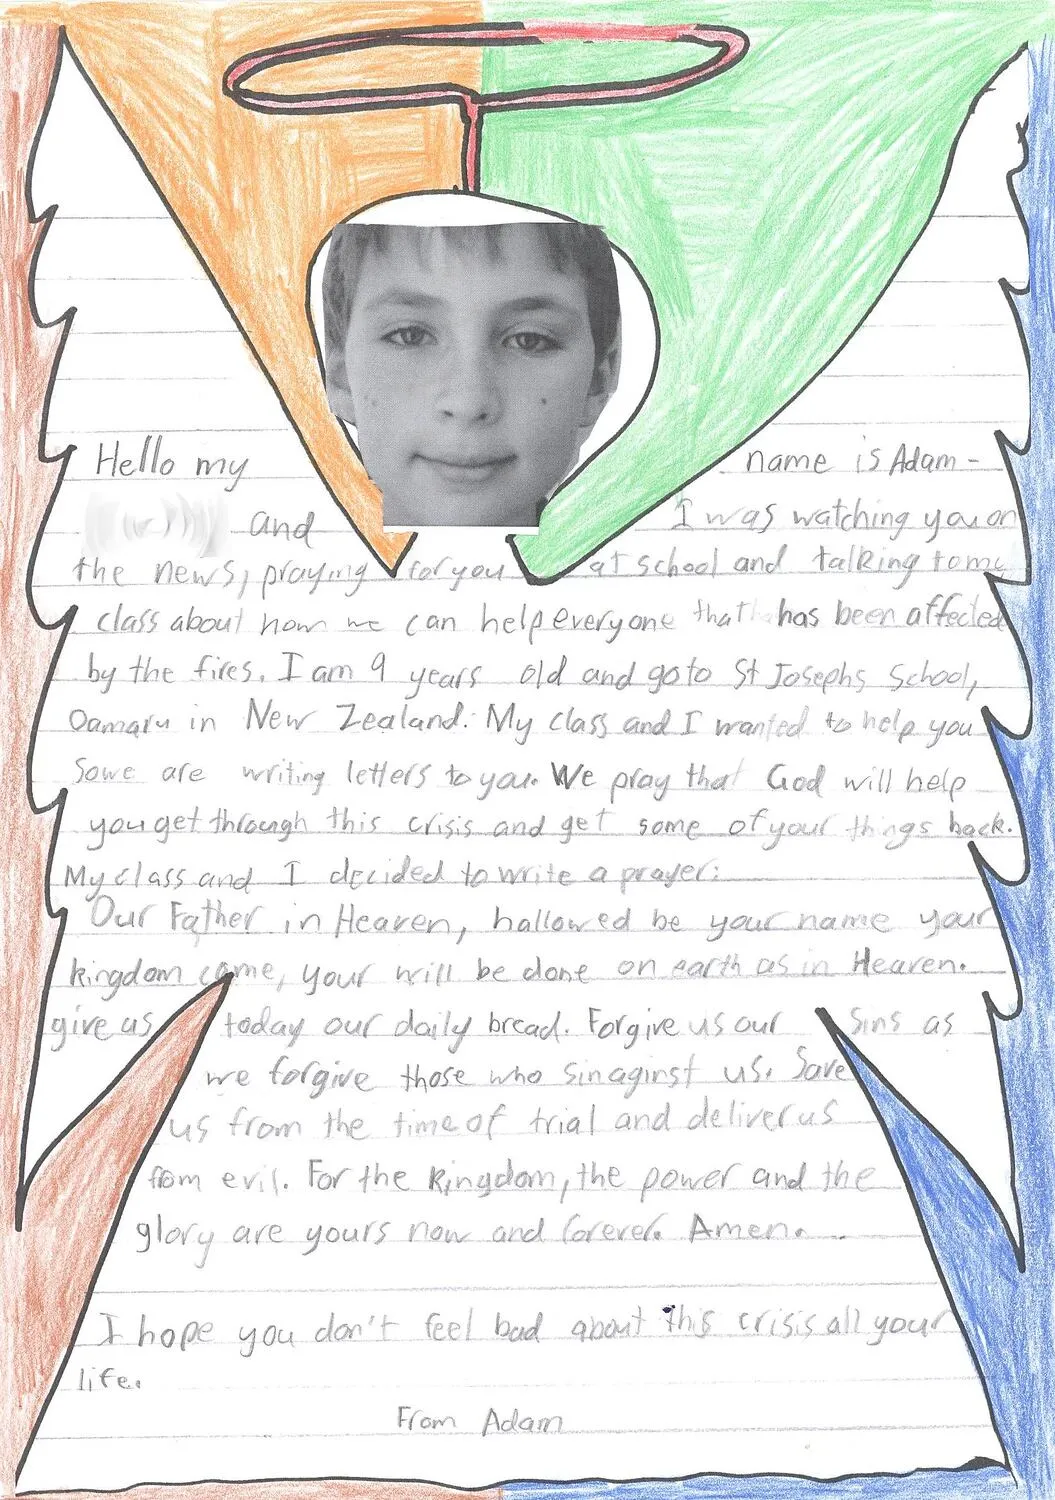 Hello my name is Adam-
and I was watching you on
the news, praying for you at school and talking to my
class about how we can help everyone that has been affected
by the fires. I am 9 years old and go to St Josephs School,
Oamaru in New Zealand. My class and I wanted to help you
So we are writing letters to you. We pray that God will help
you get through this crisis and get some of your things back.
My class and I decided to write a prayer:
Our Father in Heaven, hallowed be your name your
kingdom come, your will be done on earth as in Heaven.
give us today our daily bread. Forgive us our sins as
we forgive those who sin aginst us. Save
us from the time of trial and deliver us
from evil. For the kingdom, the power and the
glory are yours now and forever. Amen.
I hope you don't feel bad about this crisis all your
life.
From Adam